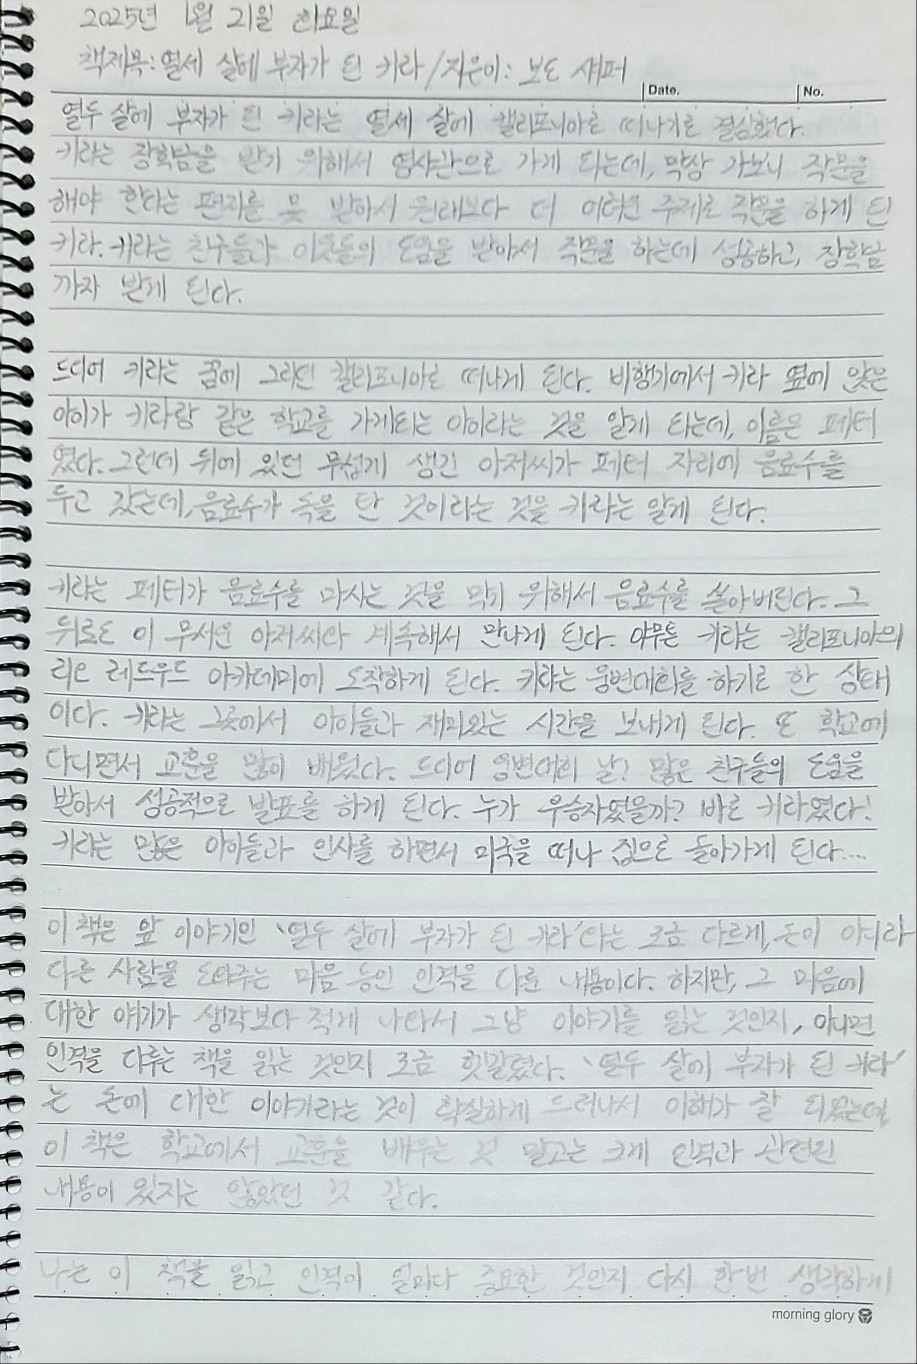 2025년 1월 21일 화요일
책제목: 열세 살에 부자가 된 키라 / 지은이: 보도 섀퍼
Date.
No.
열두 살에 부자가 된 키라는 열세 살에 캘리포니아로 떠나기로 결심했다.
키라는 장학금을 받기 위해서 영사관으로 가게 되는데, 막상 가보니 작문을
해야 한다는 편지를 못 받아서 원래보다 더 어려운 주제로 작문을 하게 된
키라. 키라는 친구들과 이웃들의 도움을 받아서 작문을 하는데 성공하고, 장학금
까지 받게 된다.
드디어 키라는 꿈에 그리던 캘리포니아로 떠나게 된다. 비행기에서 키라 옆에 앉은
아이가 키라랑 같은 학교를 가게되는 아이라는 것을 알게 되는데, 이름은 페터
였다. 그런데 뒤에 있던 무섭게 생긴 아저씨가 페터 자리에 음료수를
두고 갔는데, 음료수가 독을 탄 것이라는 것을 키라는 알게 된다.
키라는 페터가 음료수를 마시는 것을 막기 위해서 음료수를 쏟아버린다. 그
뒤로도 이 무서운 아저씨와 계속해서 만나게 된다. 아무튼 키라는 캘리포니아의
리오 레드우드 아카데미에 도착하게 된다. 키라는 웅변대회를 하기로 한 상태
이다. 키라는 그곳에서 아이들과 재미있는 시간을 보내게 된다. 또 학교에
다니면서 교훈을 많이 배웠다. 드디어 웅변대회 날! 많은 친구들의 도움을
받아서 성공적으로 발표를 하게 된다. 누가 우승자였을까? 바로 키라였다!
키라는 많은 아이들과 인사를 하면서 미국을 떠나 집으로 돌아가게 된다....
이 책은 앞 이야기인 '열두 살에 부자가 된 키라'와는 조금 다르게, 돈이 아니라
다른 사람을 도와주는 마음 등인 인격을 다룬 내용이다. 하지만, 그 마음에
대한 얘기가 생각보다 적게 나와서 그냥 이야기를 읽는 것인지, 아니면
인격을 다루는 책을 읽는 것인지 조금 헷갈렸다. '열두 살에 부자가 된 키라'
는 돈에 대한 이야기라는 것이 확실하게 드러나서 이해가 잘 되었는데,
이 책은 학교에서 교훈을 배우는 것 말고는 크게 인격과 관련된
내용이 있지는 않았던 것 같다.
나는 이 책을 읽고 인격이 얼마나 중요한 것인지 다시 한번 생각하게
morning glory